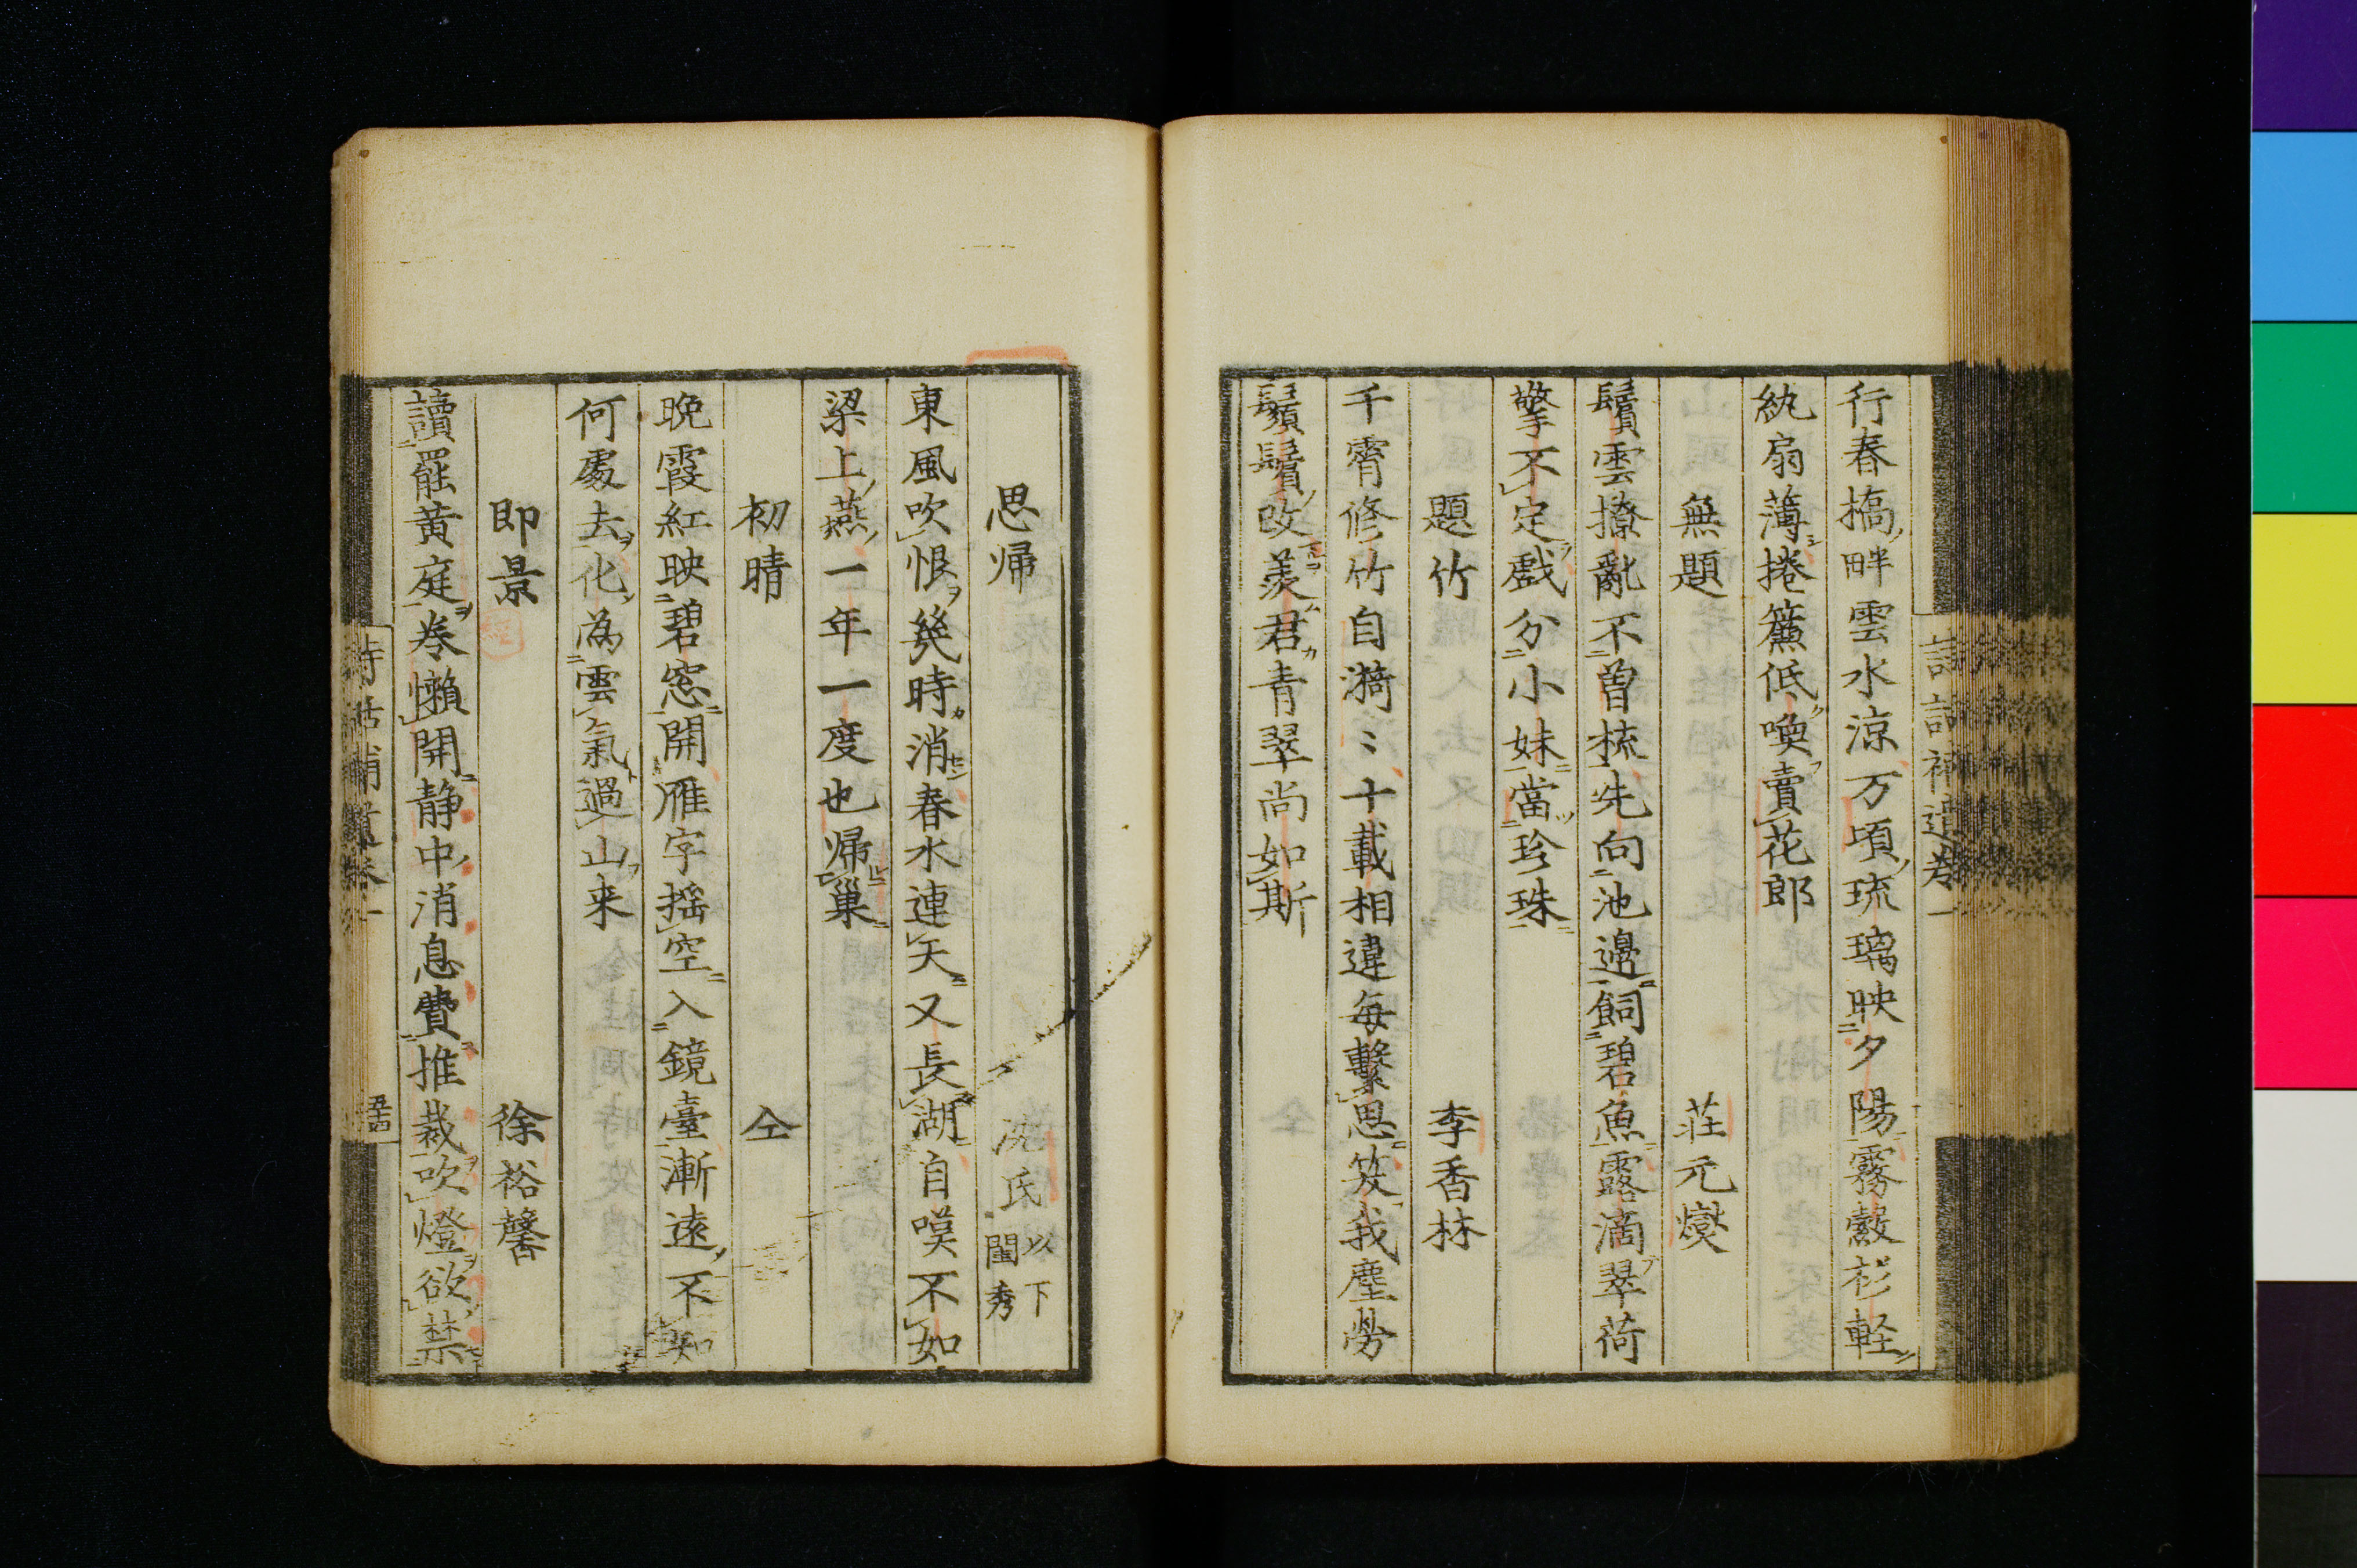 行春槗畔雲水涼万頃琉璃映夕陽霧縠衫軽
紈扇薄捲簾低喚賣花郎
無題　荘元燮
鬢雲撩亂不曽梳先向池邊飼碧魚露滴翠荷
擎不定戯分小妹當珍珠
題竹　李香林
千霄修竹自漪〻十載相違毎繋思笑我塵勞
鬚鬢改羨君青翠尚如斯
思帰　沈氏 以下閨秀
東風吹恨幾時消春水連天又長湖自嘆不如
梁上燕一年一度也帰巣
初晴　仝
晩霞紅映碧窓開雁字揺空入鏡臺漸遠不知
何處去化為雲氣過山来
即景　徐裕馨
讀罷黄庭巻懶開静中消息費推裁吹燈欲禁
詩話補遺巻一